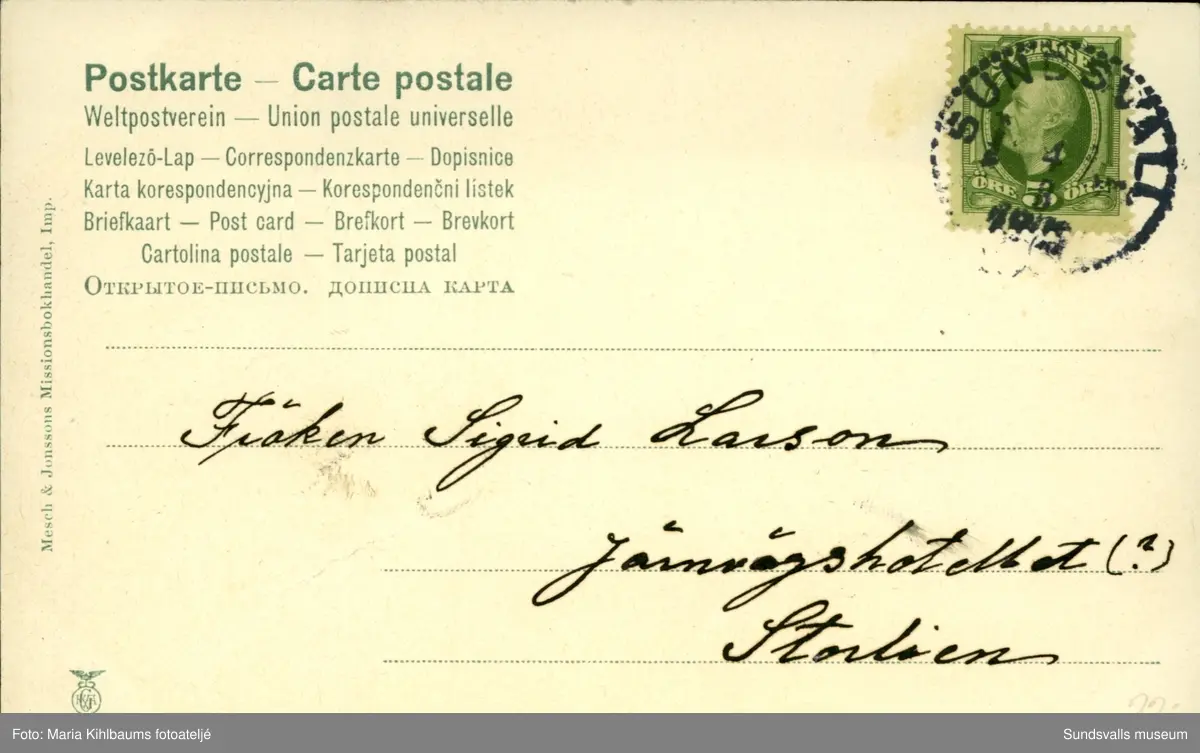 Postkarte — Carte postale
Weltpostverein — Union postale universelle
Levelező-Lap — Correspondenzkarte — Dopisnice
Karta korespondencyjna — Korespondenčni listek
Briefkaart — Post card — Brefkort — Brevkort
Cartolina postale — Tarjeta postal
Открытое-письмо. дописна карта
Mesch & Jonssons Missionsbokhandel, Imp.
SVERIGE
ÖRE 5 ÖRE
SUNDSVALL
4
8
Fröken Sigrid Larson
Järnvägshotellet (?)
Storlien
Foto: Maria Kihlbaums fotoateljé
Sundsvalls museum